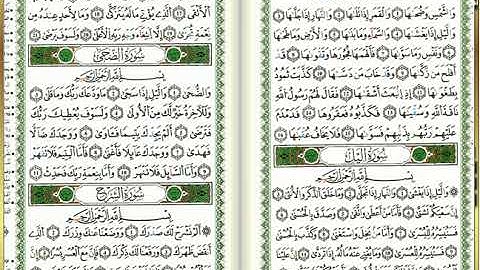 وَالشَّمْسِ وَضُحَىٰهَا وَالْقَمَرِ إِذَا تَلَىٰهَا وَالنَّهَارِ إِذَا جَلَّىٰهَا
وَالَّيْلِ إِذَا يَغْشَىٰهَا وَالسَّمَآءِ وَمَا بَنَىٰهَا وَالْأَرْضِ وَمَا طَحَىٰهَا
وَنَفْسٍ وَمَا سَوَّىٰهَا فَأَلْهَمَهَا فُجُورَهَا وَتَقْوَىٰهَا قَدْ أَفْلَحَ
مَن زَكَّىٰهَا وَقَدْ خَابَ مَن دَسَّىٰهَا كَذَّبَتْ ثَمُودُ
بِطَغْوَىٰهَا إِذِ انۢبَعَثَ أَشْقَىٰهَا فَقَالَ لَهُمْ رَسُولُ اللَّهِ
نَاقَةَ اللَّهِ وَسُقْيَٰهَا فَكَذَّبُوهُ فَعَقَرُوهَا فَدَمْدَمَ
عَلَيْهِمْ رَبُّهُم بِذَنۢبِهِمْ فَسَوَّىٰهَا فَلَا يَخَافُ عُقْبَٰهَا
سُورَةُ اللَّيْلِ
بِسْمِ اللَّهِ الرَّحْمَٰنِ الرَّحِيمِ
وَالَّيْلِ إِذَا يَغْشَىٰ وَالنَّهَارِ إِذَا تَجَلَّىٰ وَمَا خَلَقَ الذَّكَرَ وَالْأُنثَىٰ
إِنَّ سَعْيَكُمْ لَشَتَّىٰ فَأَمَّا مَنْ أَعْطَىٰ وَاتَّقَىٰ وَصَدَّقَ بِالْحُسْنَىٰ
فَسَنُيَسِّرُهُ لِلْيُسْرَىٰ وَأَمَّا مَنۢ بَخِلَ وَاسْتَغْنَىٰ وَكَذَّبَ بِالْحُسْنَىٰ
فَسَنُيَسِّرُهُ لِلْعُسْرَىٰ وَمَا يُغْنِي عَنْهُ مَالُهُ إِذَا تَرَدَّىٰ إِنَّ عَلَيْنَا
الْأَتْقَى الَّذِي يُؤْتِي مَالَهُ يَتَزَكَّىٰ وَمَا لِأَحَدٍ عِندَهُ مِن
نِّعْمَةٍ تُجْزَىٰ إِلَّا ابْتِغَآءَ وَجْهِ رَبِّهِ الْأَعْلَىٰ وَلَسَوْفَ يَرْضَىٰ
سُورَةُ الضُّحَىٰ
بِسْمِ اللَّهِ الرَّحْمَٰنِ الرَّحِيمِ
وَالضُّحَىٰ وَالَّيْلِ إِذَا سَجَىٰ مَا وَدَّعَكَ رَبُّكَ وَمَا قَلَىٰ
وَلَلْآخِرَةُ خَيْرٌ لَّكَ مِنَ الْأُولَىٰ وَلَسَوْفَ يُعْطِيكَ رَبُّكَ
فَتَرْضَىٰ أَلَمْ يَجِدْكَ يَتِيمًا فَآوَىٰ وَوَجَدَكَ ضَآلًّا
فَهَدَىٰ وَوَجَدَكَ عَآئِلًا فَأَغْنَىٰ فَأَمَّا الْيَتِيمَ فَلَا تَقْهَرْ
وَأَمَّا السَّآئِلَ فَلَا تَنْهَرْ وَأَمَّا بِنِعْمَةِ رَبِّكَ فَحَدِّثْ
سُورَةُ الشَّرْحِ
بِسْمِ اللَّهِ الرَّحْمَٰنِ الرَّحِيمِ
أَلَمْ نَشْرَحْ لَكَ صَدْرَكَ وَوَضَعْنَا عَنكَ وِزْرَكَ الَّذِي
أَنقَضَ ظَهْرَكَ وَرَفَعْنَا لَكَ ذِكْرَكَ فَإِنَّ مَعَ الْعُسْرِ يُسْرًا إِنَّ